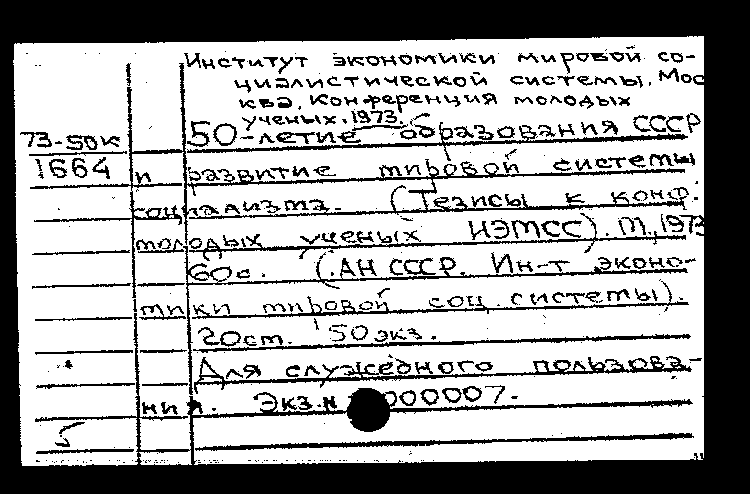 Институт экономики мировой со-
циалистической системы. Мос
ква. Конференция молодых
ученых. 1973.
73-50к
50-летие образования СССР
1664
и развитие мировой системы
социализма. (Тезисы к конф.
молодых ученых ИЭМСС). М., 1973
60с. (АН СССР. Ин-т эконо-
мики мировой соц. системы).
20см. 150экз.
Для служебного пользова-
ния. Экз.н 000007.
5